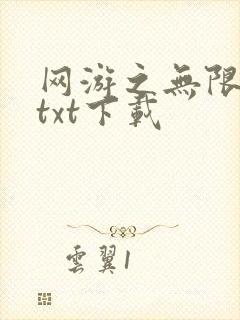 网游之無限
txt下載
雲翼1